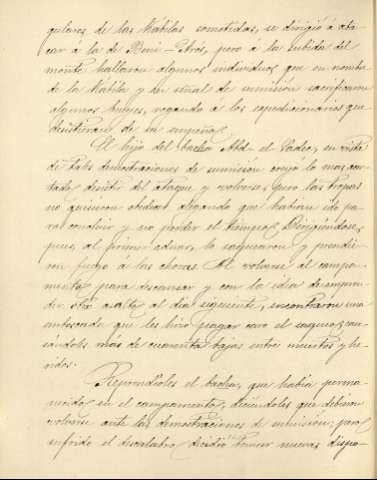 gulares de las Kábilas sometidas, se dirigió á ata-
car á la de Beni-Atros, pero á la subida del
monte hallaron algunos individuos que en nombre
de la Kabila y en señal de sumisión sacrificaron
algunos bueyes, rogando á los expedicionarios que
desistieran de la empresa.
El hijo del bacha Abd-el-Sadec, en vista
de tales demostraciones de sumisión creyó lo mas acer-
tado desistir del ataque y volverse, pero las tropas
no quisieron obedecer alegando que habian ido pa-
ra concluir y no perder el tiempo. Dirigiéndose,
pues, al primer aduar, lo saquearon y prendie-
ron fuego á las chozas. Al volverse al campa-
mento para descansar y con la idea de empren-
der otro asalto al dia siguiente, encontraron una
emboscada que les hizo pagar caro el saqueo, cau-
sándoles más de cuarenta bajas entre muertos y he-
ridos.
Reprendióles el bacha, que habia perma-
necido en el campamento, diciéndoles que debieron
volverse ante las demostraciones de sumisión; pero
sufrido el descalabro decidió tomar nuevas dispo-